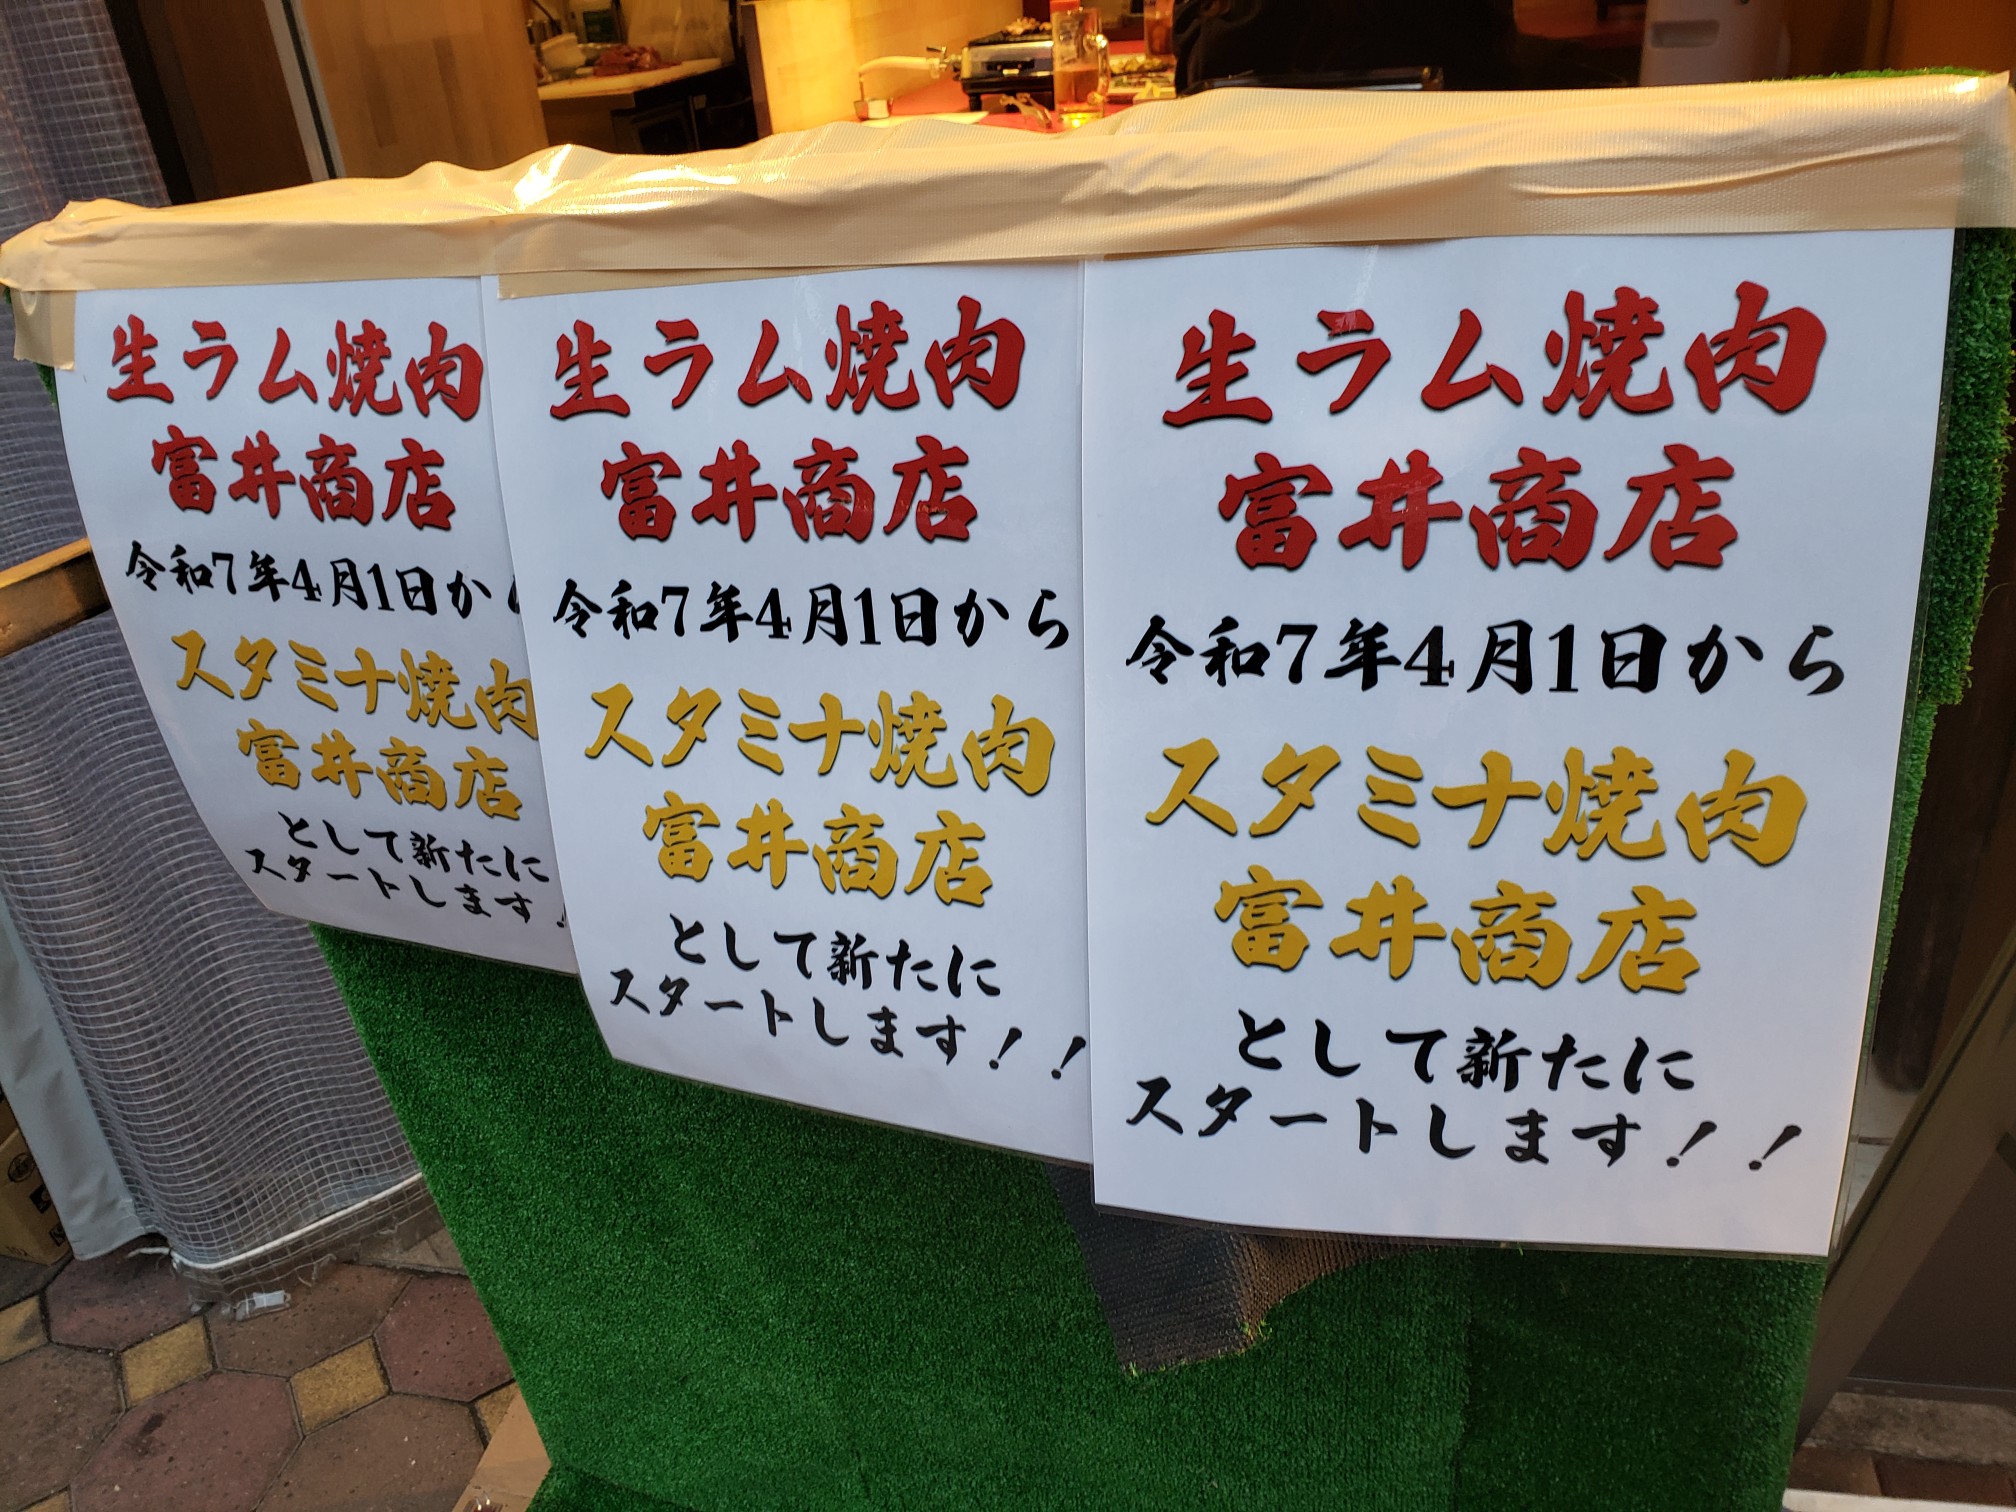 生ラム焼肉
富井商店
令和7年4月1日か
スタミナ焼肉
富井商店
として新たに
スタートします!
生ラム焼肉
富井商店
令和7年4月1日から
スタミナ焼肉
富井商店
として新たに
スタートします!!
生ラム焼肉
富井商店
令和7年4月1日から
スタミナ焼肉
富井商店
として新たに
スタートします!!